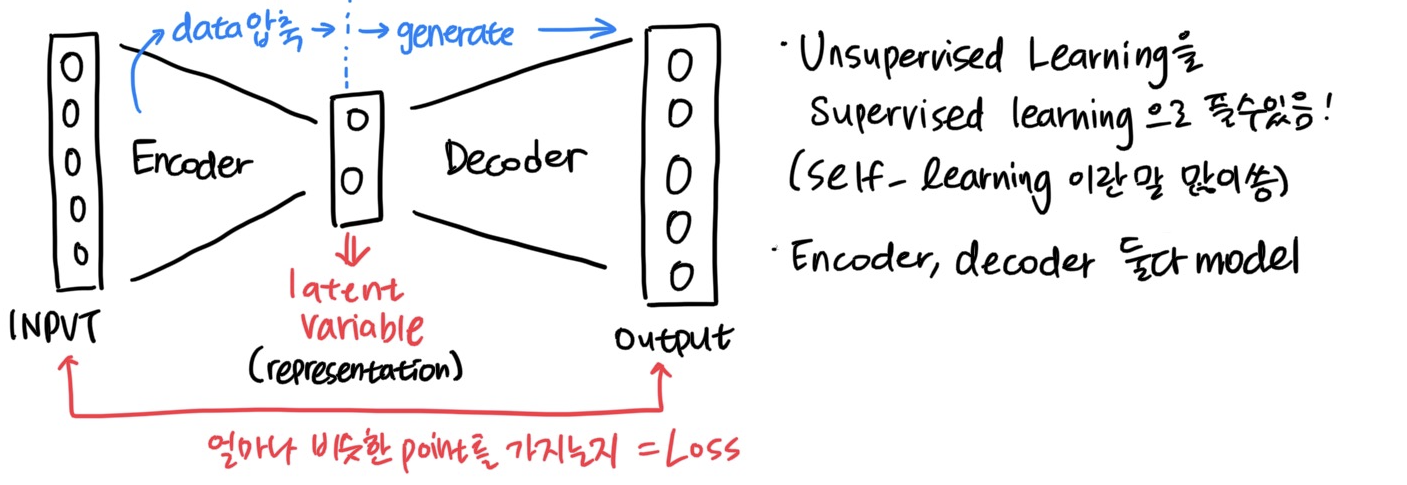 data압축 → → generate →
Encoder
Decoder
INPUT
latent
variable
(representation)
output
얼마나 비슷한 point를 가지는지 = Loss
· Unsupervised Learning을
Supervised learning 으로 풀수있음!
(self- learning 이란말 많이씀)
· Encoder, decoder 둘다 model